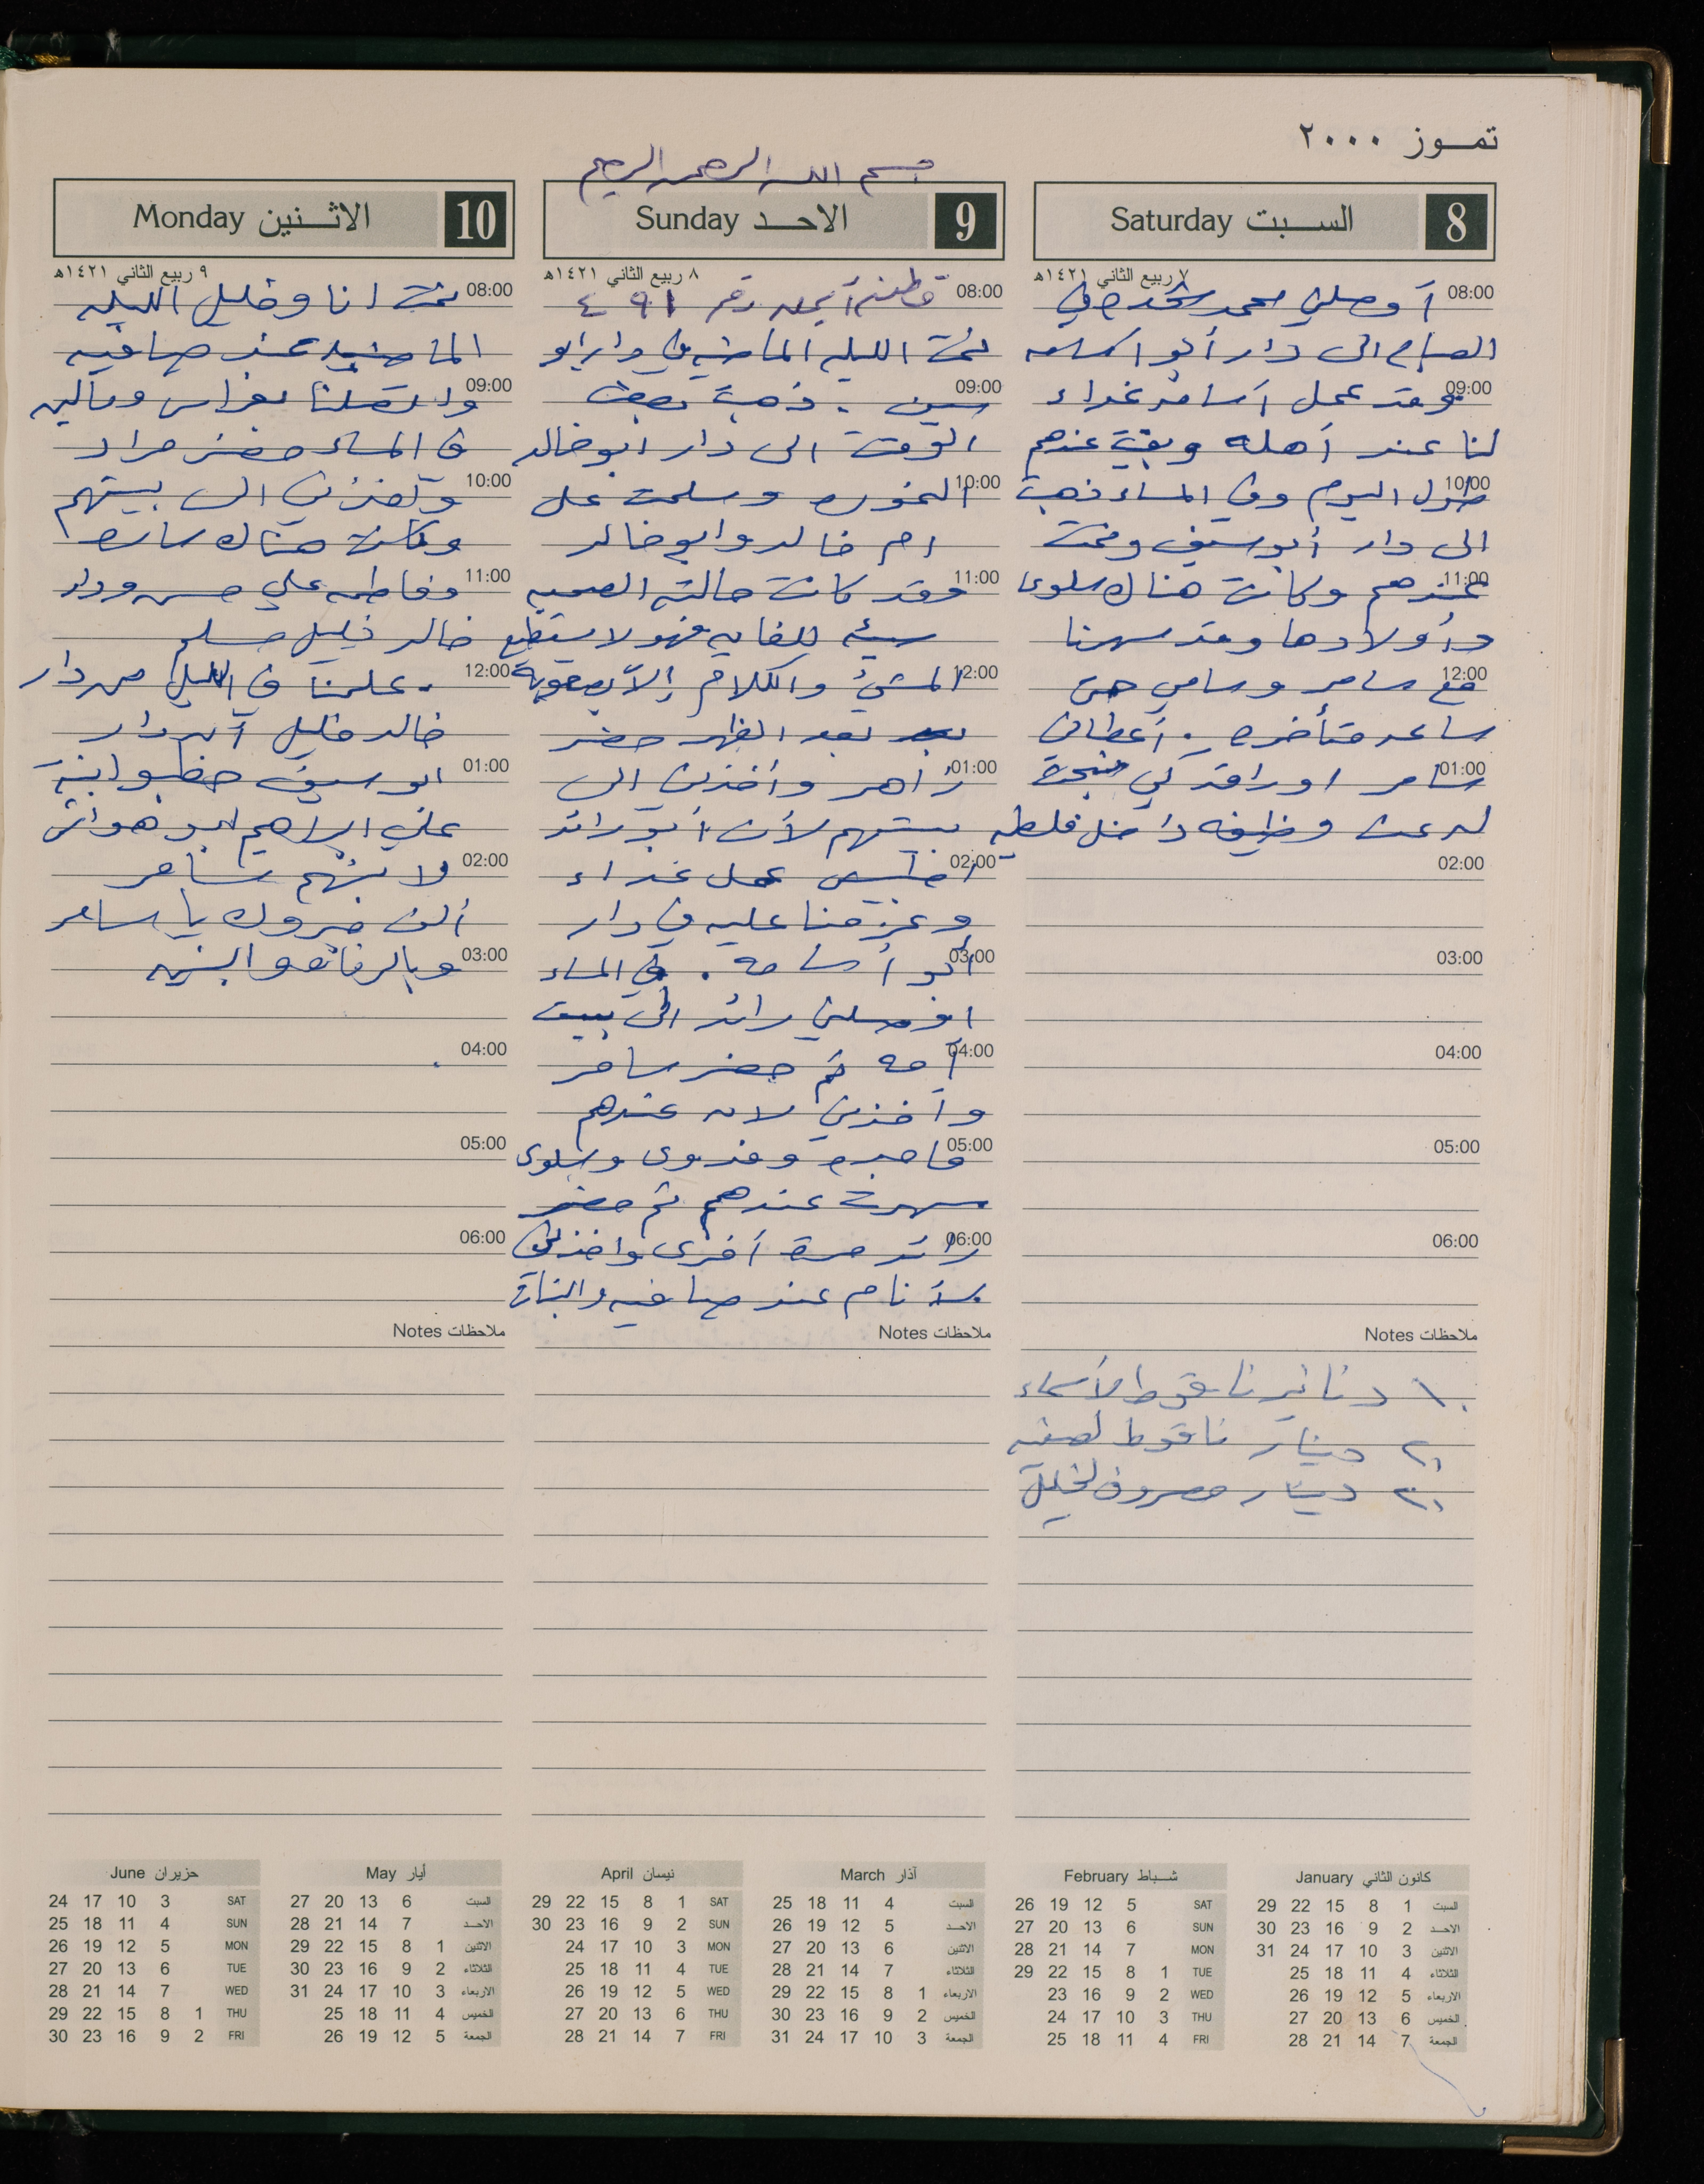 تمـوز ٢٠٠٠
بسم الله الرحمن الرحيم
8 السـبت Saturday
٧ ربيع الثاني ١٤٢١هـ
08:00 أوصلني محمد في
الصباح الى دار أبو اسامه
09:00 وقد عمل أسامة غداء
لنا عند أهله وبقيت عندهم
10:00 طول اليوم وفي المساء ذهبت
الى دار أبو سيف ونمت
11:00 عندهم وكانت هناك سلوى
وأولادها وقد سهرنا
12:00 مع سامر وسامي حتى
ساعه متأخره. أعطاني
01:00 سامر اوراقه لكي
له عن وظيفه داخل
02:00
03:00
04:00
05:00
06:00
ملاحظات Notes
١٠ دنانير ناقوط لأسماء
٢٠ دينار ناقوط
٢٠ دينار مصروف لخليل
9 الاحـد Sunday
٨ ربيع الثاني ١٤٢١هـ
08:00 أيمن رقم ٤٩١
نمت الليله الماضيه في دار ابو
09:00 سيف. ذهبت بعض
الوقت الى دار ابو خالد
10:00 وسلمت على
ام خالد وابو خالد
11:00 فقد كانت حالته الصحيه
سيئه للغايه فهو لا يستطيع
12:00 المشي والكلام إلا بصعوبة
بعد الظهر حضر
01:00 زاهر وأخذني الى
بيتهم لأن أبو رائد
02:00 عمل غداء
وعزمنا عليه في دار
03:00 أبو أسامه. في المساء
اوصلني رائد الى بيت
04:00 أمه ثم حضر سامر
وأخذني لان عندهم
05:00 ماجده وفدوى وسلوى
سهرت عندهم ثم حضر
06:00 رائد مرة أخرى واخذني
نام عند صافيه والبنات
ملاحظات Notes
10 الاثـنين Monday
٩ ربيع الثاني ١٤٢١هـ
08:00 نمت انا وخليل الليله
الماضيه عند صافيه
09:00 واتصلنا بفراس
في المساء حضر مراد
10:00 وأخذني الى بيتهم
وكانت هناك ساره
11:00 وفاطمه علي حسن
خالد خليل مسلم
12:00 . علمنا في الليل من دار
خالد خليل أن دار
01:00 ابو سيف خطبوا ابنة
علي ابراهيم ابو هواش
02:00 لابنهم سامر
ألف مبروك يا سامر
03:00 وبالرفاه والبنين
04:00
05:00
06:00
ملاحظات Notes
كانون الثاني January
السبت 1 8 15 22 29
الاحـد 2 9 16 23 30
الاثنين 3 10 17 24 31
الثلاثاء 4 11 18 25
الاربعاء 5 12 19 26
الخميس 6 13 20 27
الجمعة 7 14 21 28
شـباط February
SAT 5 12 19 26
SUN 6 13 20 27
MON 7 14 21 28
TUE 1 8 15 22 29
WED 2 9 16 23
THU 3 10 17 24
FRI 4 11 18 25
آذار March
السبت 4 11 18 25
الاحـد 5 12 19 26
الاثنين 6 13 20 27
الثلاثاء 7 14 21 28
الاربعاء 1 8 15 22 29
الخميس 2 9 16 23 30
الجمعة 3 10 17 24 31
نيسان April
SAT 1 8 15 22 29
SUN 2 9 16 23 30
MON 3 10 17 24
TUE 4 11 18 25
WED 5 12 19 26
THU 6 13 20 27
FRI 7 14 21 28
أيار May
السبت 6 13 20 27
الاحـد 7 14 21 28
الاثنين 1 8 15 22 29
الثلاثاء 2 9 16 23 30
الاربعاء 3 10 17 24 31
الخميس 4 11 18 25
الجمعة 5 12 19 26
حزيران June
SAT 3 10 17 24
SUN 4 11 18 25
MON 5 12 19 26
TUE 6 13 20 27
WED 7 14 21 28
THU 1 8 15 22 29
FRI 2 9 16 23 30